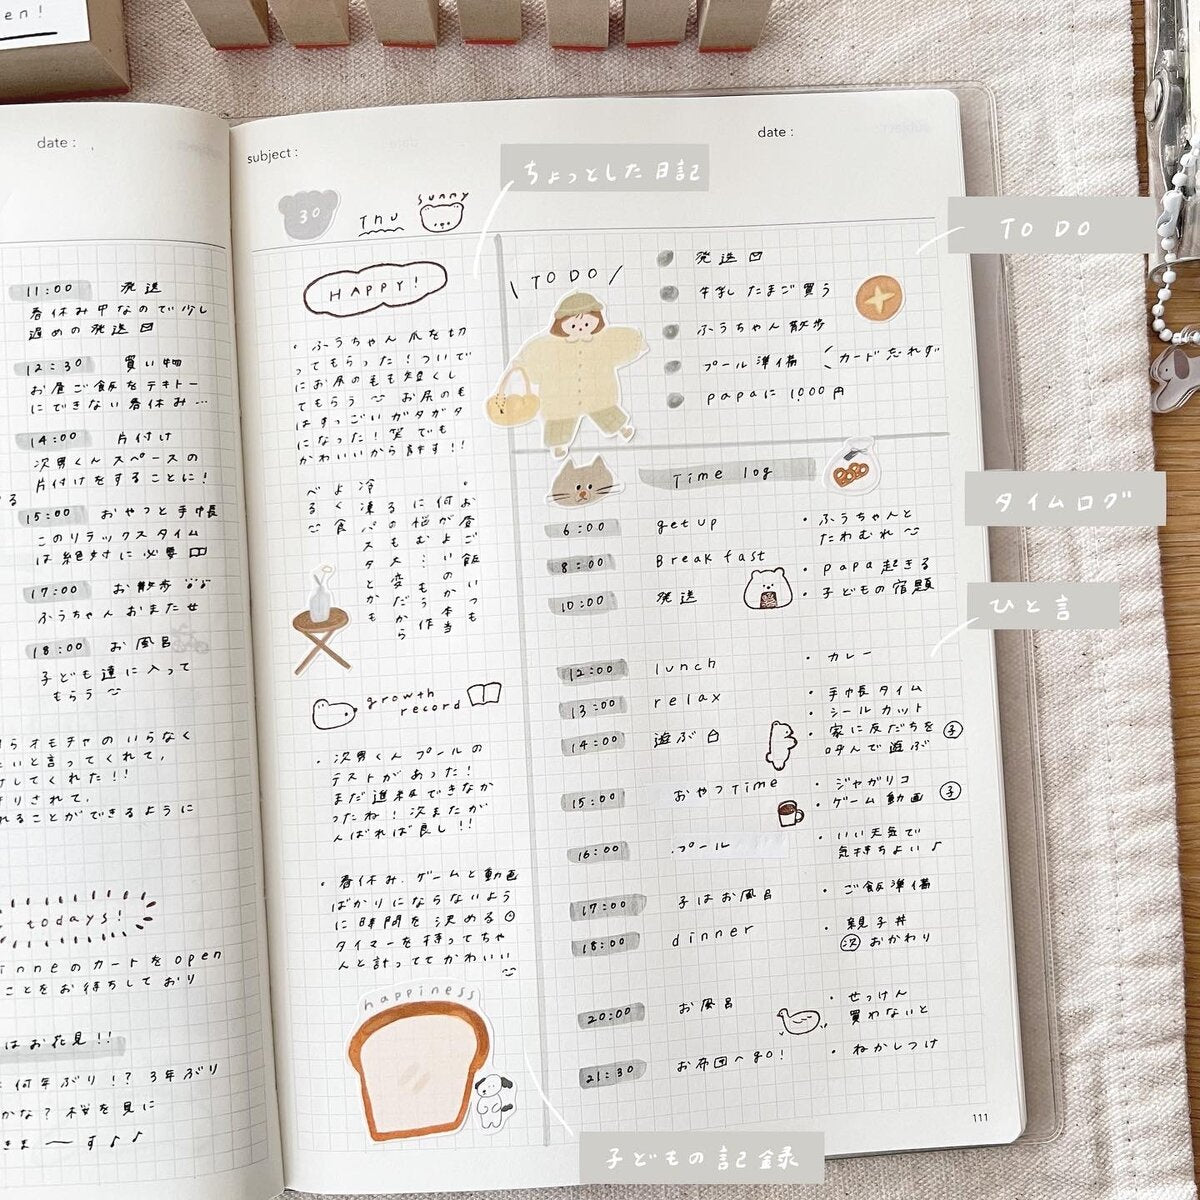 en!
date :
11:00 発送
春休み中なので少し
遅めの発送
12:30 買い物
お昼ご飯をテキトー
にできない春休み…
14:00 片付け
次男くんスペースの
片付けをすることに!
15:00 おやつと手帳
このリラックスタイム
は絶対に必要
17:00 お散歩
ふうちゃんおまたせ
18:00 お風呂
子ども達に入って
もらう
らオモチャのいらなく
いと言ってくれて,
けしてくれた!!
きりされて,
れることができるように
todays!
inneのカートをopen
ことをお待ちしており
はお花見!!
何年ぶり!? 3年ぶり
かな? 桜を見に
きま〜す♪♪
subject :
date :
30 Thu sunny
ちょっとした日記
HAPPY!
・ふうちゃん爪を切
ってもらった!ついで
にお尻の毛も短くし
てもらう お尻の毛
はすっごいガタガタ
になった!笑 でも
かわいいから許す!!
・お昼ご飯いつも
何がいいのか本当
に悩むよ…もう作
るのも大変だから
冷凍パスタとかも
よく食
べる
growth
record
・次男くんプールの
テストがあった!
まだ進級できなか
ったね!次またが
んばれば良し!!
・春休み.ゲームと動画
ばかりにならないよう
に時間を決める
タイマーを持ってちゃ
んと計っててかわいい
happiness
子どもの記録
TO DO
TO DO
発送
牛乳 たまご買う
ふうちゃん散歩
プール準備 カード忘れず
papaに1,000円
Time log
タイムログ
6:00 get up ・ふうちゃんと
たわむれ
8:00 Breakfast ・papa起きる
10:00 発送 ・子どもの宿題
ひと言
12:00 lunch ・カレー
13:00 relax ・手帳タイム
・シールカット
14:00 遊ぶ ・家に友だちを 子
呼んで遊ぶ
15:00 おやつTime ・ジャガリコ
・ゲーム動画 子
16:00 プール ・いい天気で
気持ちよい♪
17:00 子はお風呂 ・ご飯準備
18:00 dinner ・親子丼
次 おかわり
20:00 お風呂 ・せっけん
買わないと
21:30 お布団へgo! ・ねかしつけ
111